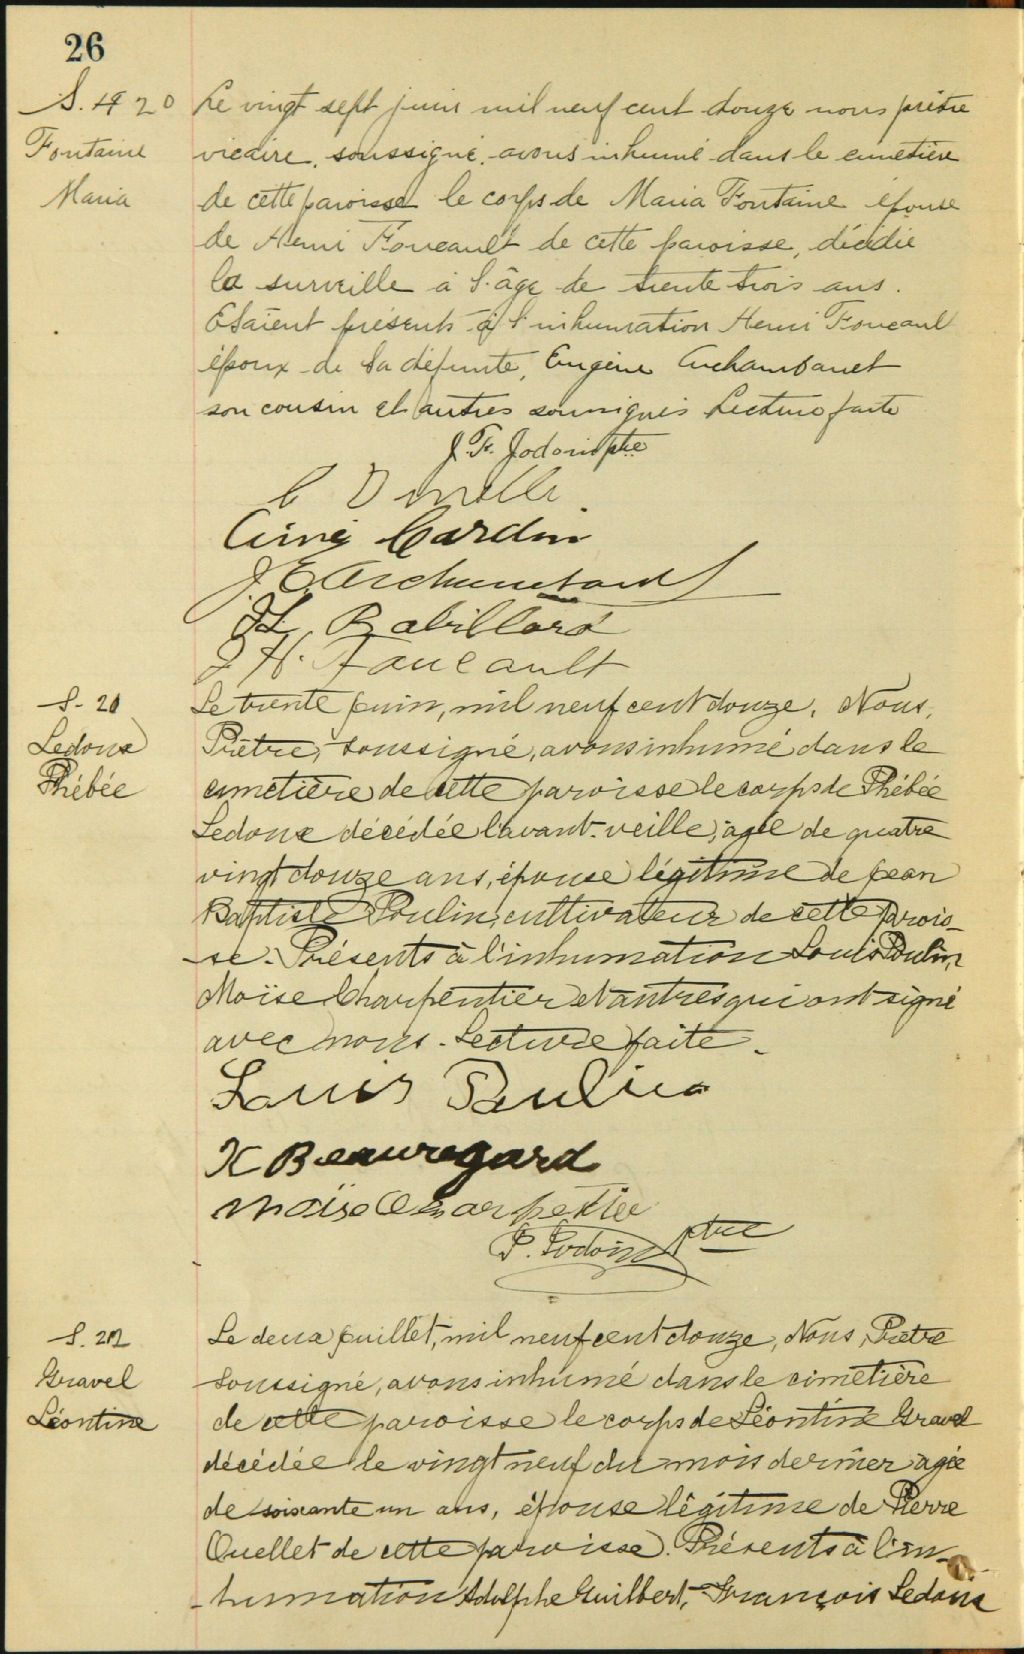 26
S. 20
Fontaine
Maria
Le vingt sept juin mil neuf cent douze nous prêtre
vicaire soussigné avons inhumé dans le cimetière
de cette paroisse le corps de Maria Fontaine épouse
de Henri Foucault de cette paroisse, décédée
la surveille à l'âge de trente trois ans.
Etaient présents à l'inhumation Henri Foucault
époux de la défunte, Eugène Archambault
son cousin et autres soussignés Lecture faite
J. F. Jodoin ptre
Aimé Cardin
J. E. Archambault
Rabillard
J H. Foucault
S. 21
Ledoux
Phébée
Le trente juin, mil neuf cent douze, Nous,
Prêtre, soussigné, avons inhumé dans le
cimetière de cette paroisse le corps de Phébée
Ledoux décédée l'avant-veille, agée de quatre
vingt douze ans, épouse légitime de Jean
Baptiste Poulin, cultivateur de cette parois-
-se. Présents à l'inhumation Louis Poulin,
Moïse Charpentier et autres qui ont signé
avec nous. Lecture faite.
Louis Paulin
X Beauregard
Moïse Charpentier
P. Jodoin ptre
S. 22
Gravel
Léontine
Le deux juillet, mil neuf cent douze, Nous, Prêtre
soussigné, avons inhumé dans le cimetière
de cette paroisse le corps de Léontine Gravel
décédée le vingt neuf du mois dernier agée
de soixante un ans, épouse légitime de Pierre
Ouellet de cette paroisse. Présents à l'in-
-humation Adolphe Guilbert, François Ledoux